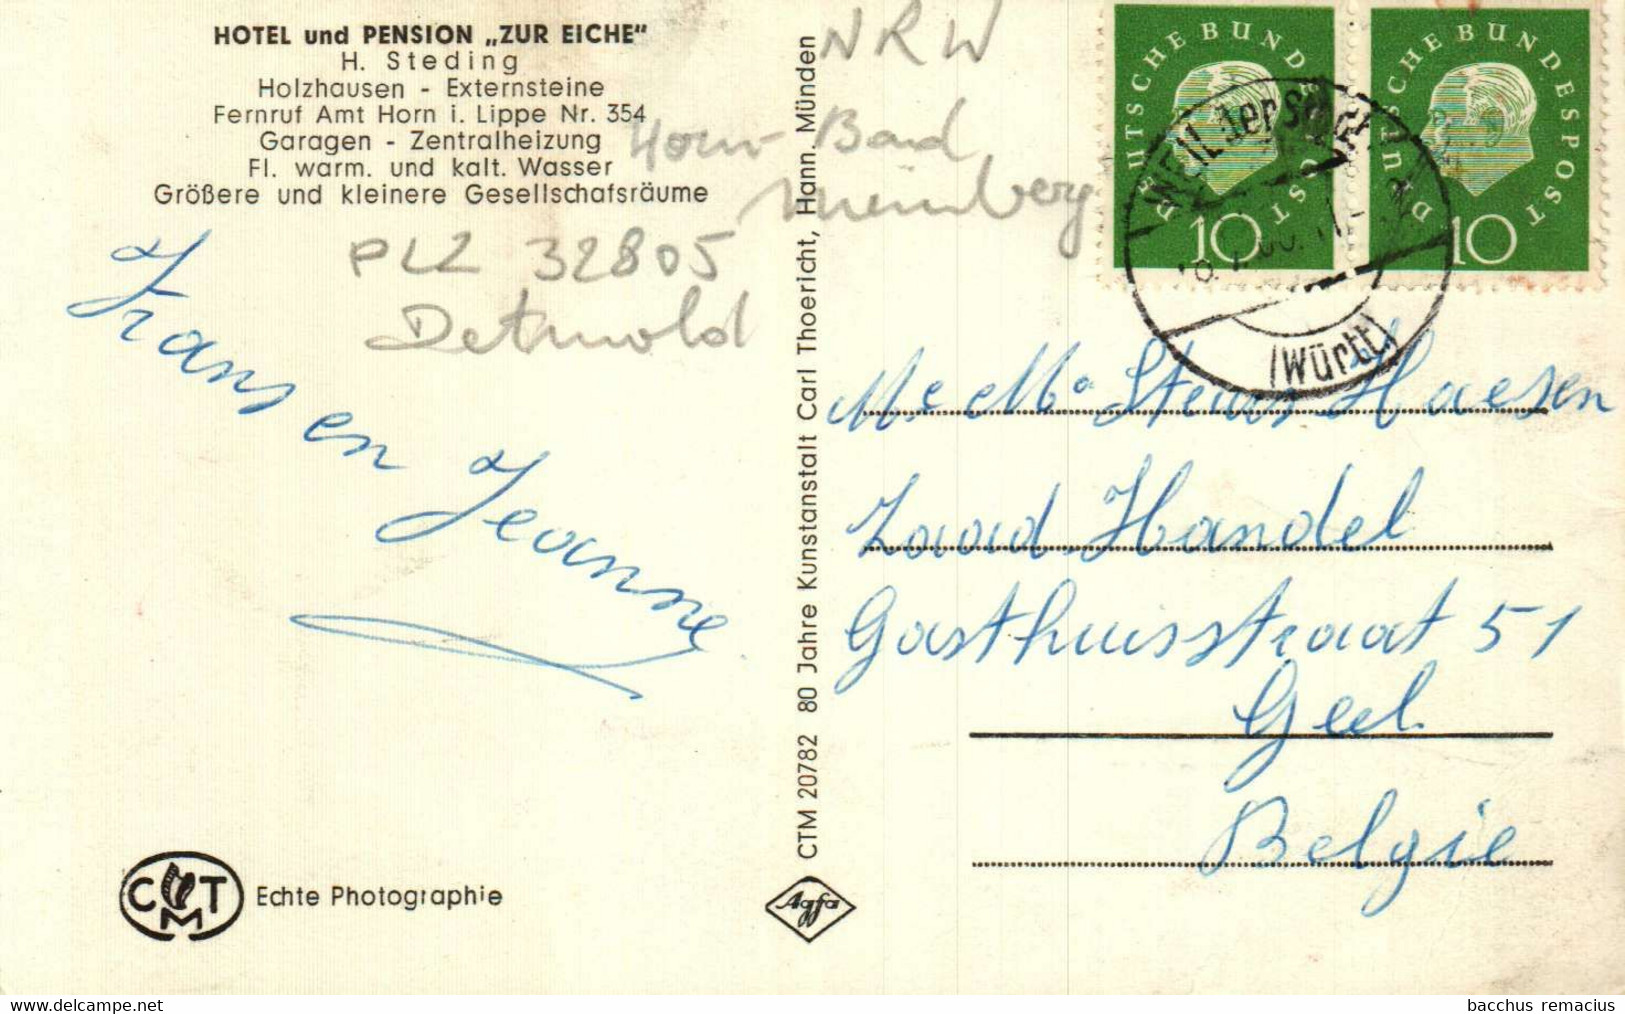 HOTEL und PENSION „ZUR EICHE"
H. Steding
Holzhausen - Externsteine
Fernruf Amt Horn i. Lippe Nr. 354
Garagen - Zentralheizung
Fl. warm. und kalt. Wasser
Größere und kleinere Gesellschafsräume
NRW
Horn-Bad
Meinberg
PLZ 32805
Detmold
Frans en Jeanne
CMT Echte Photographie
CTM 20782 80 Jahre Kunstanstalt Carl Thoericht, Hann. Münden
Agfa
DEUTSCHE BUNDESPOST
10
DEUTSCHE BUNDESPOST
10
(Württ)
Haesen
Zaad-Handel
Gasthuisstraat 51
Geel
Belgie
www.delcampe.net
bacchus remacius